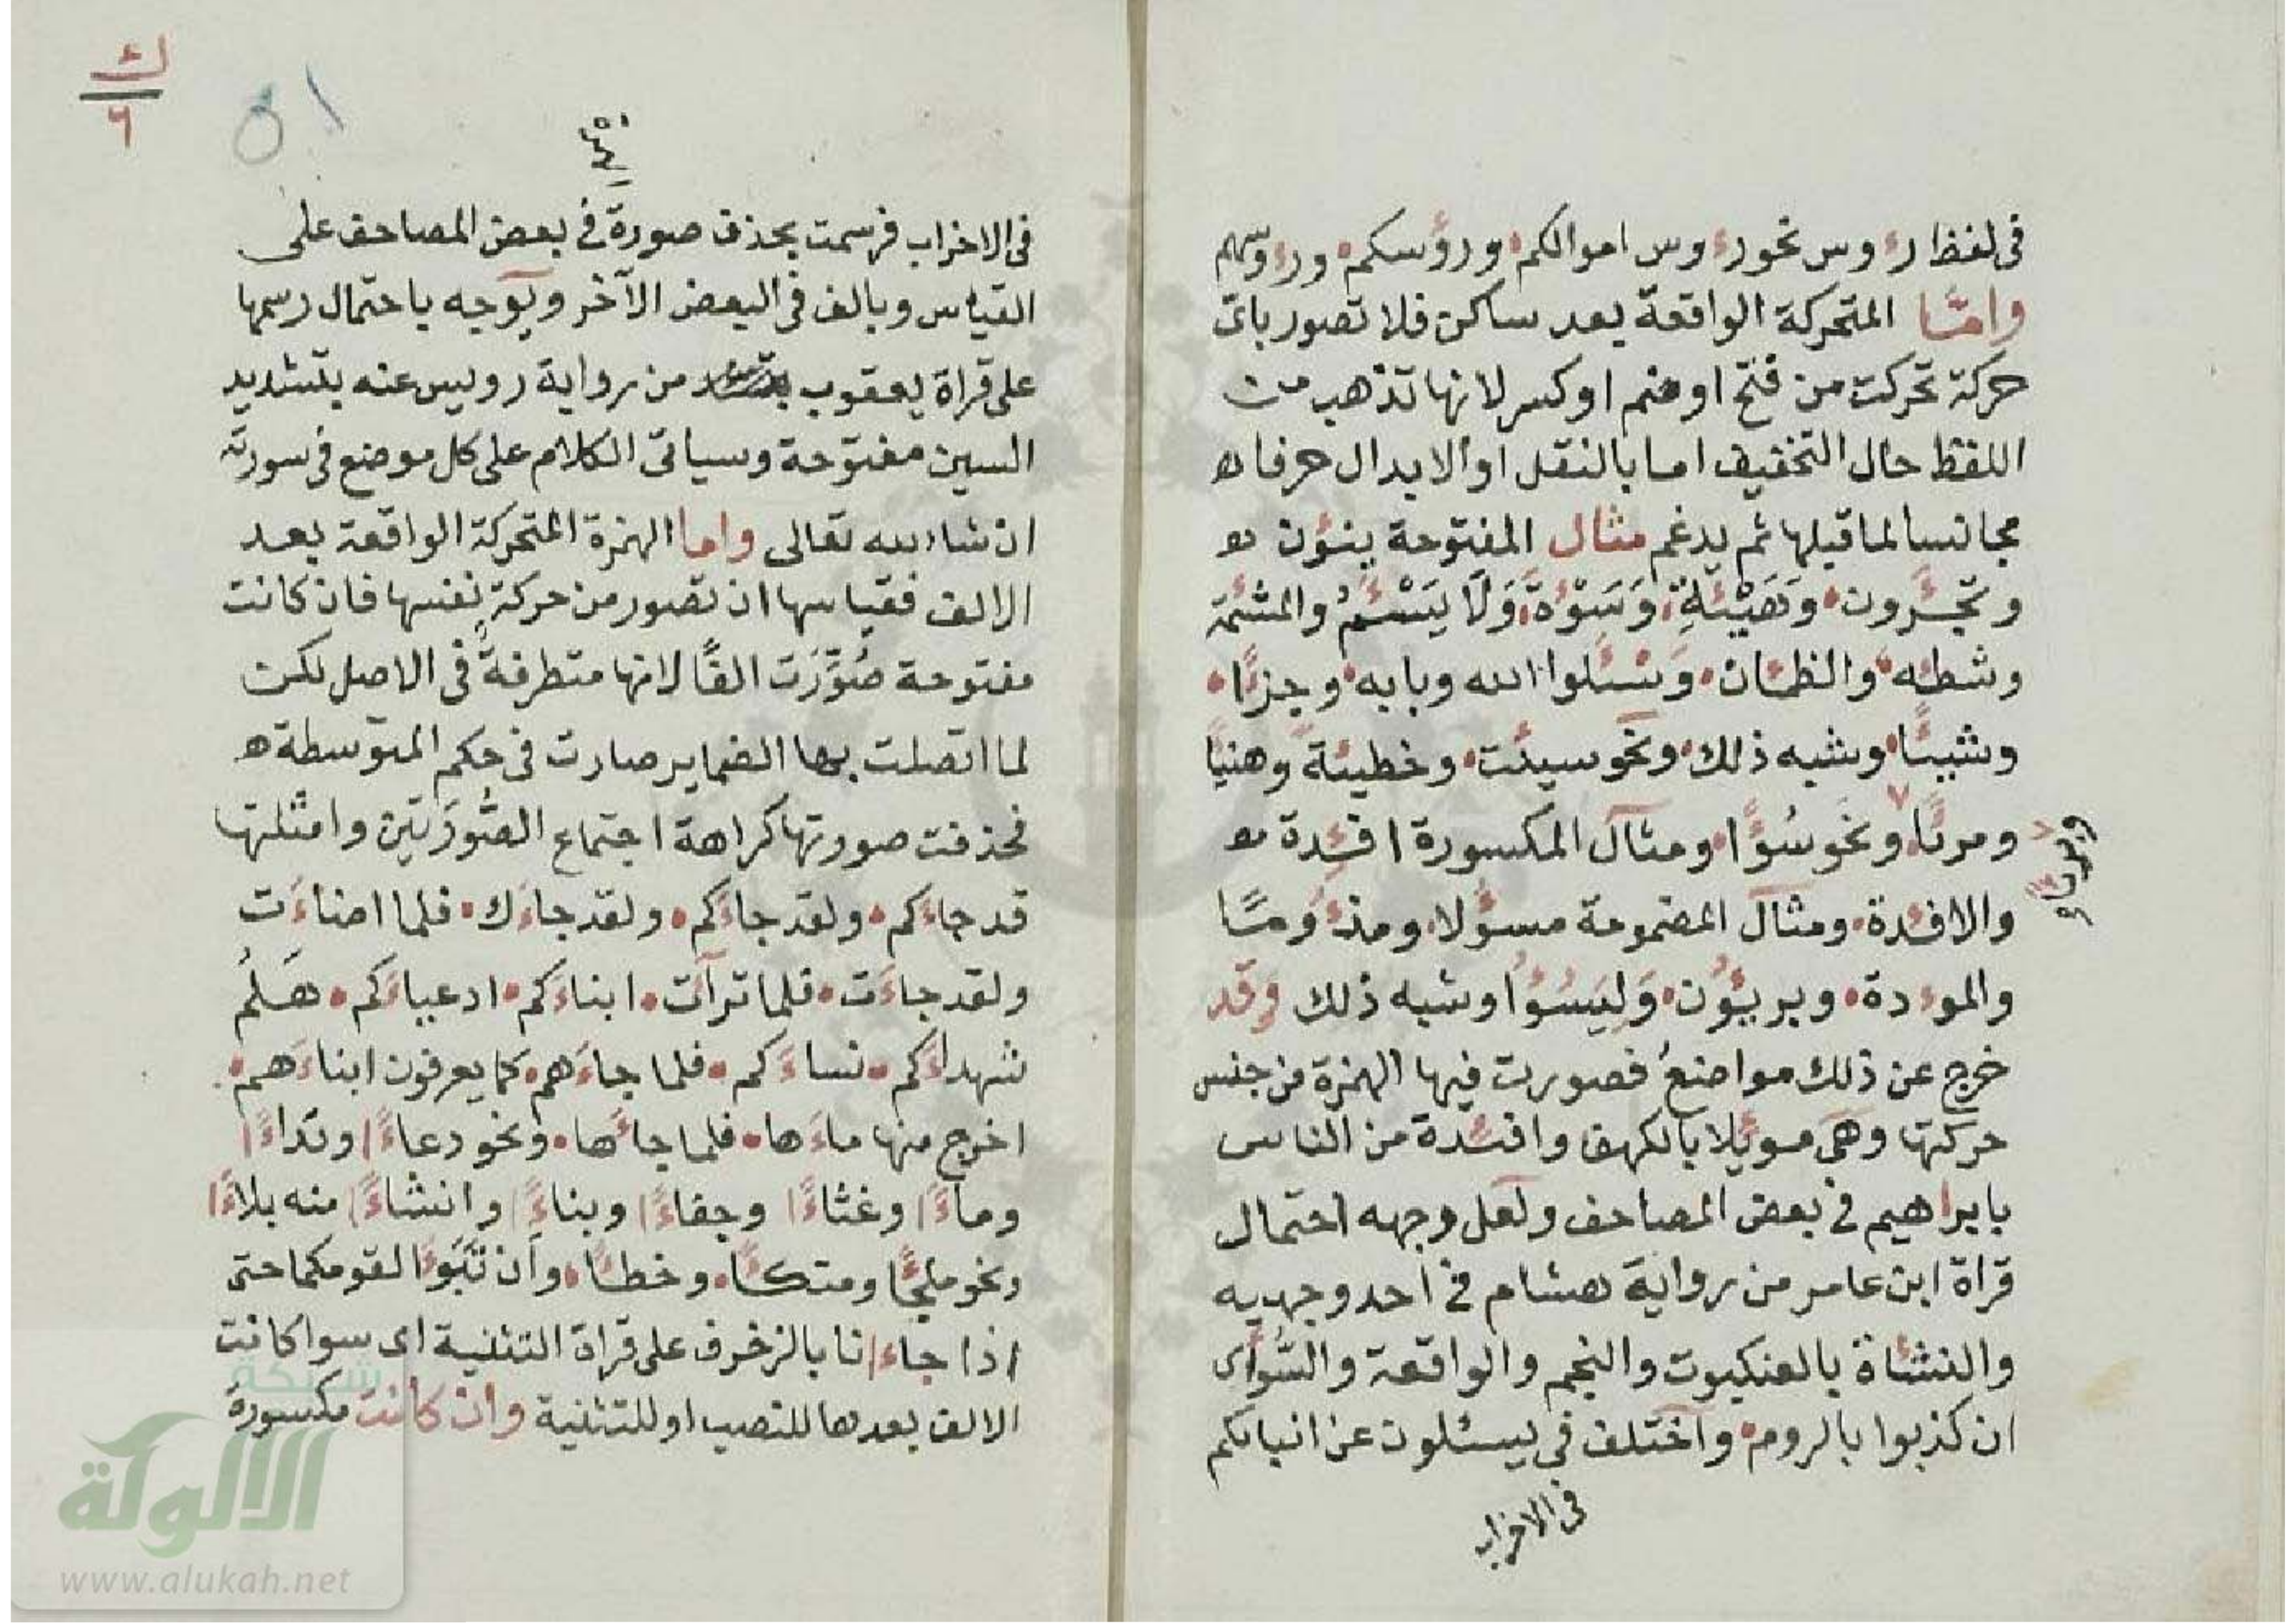 فى لفظ رءوس نحو رءوس اموالكم ورءوسكم ورءوسهم
واما المتحركة الواقعة بعد ساكن فلا تصور باى
حركة تحركت من فتح او ضم او كسر لانها تذهب من
اللفظ حال التخفيف اما بالنقل او الابدال حرفا
مجانسا لما قبلها ثم يدغم مثال المفتوحة ينئون
وتجئرون وكهيئة وسوءة ولا يسئم والمشئمة
وشطئه والظمئان وسئلوا الله وبابه وجزءا
وشيئا وشبه ذلك ونحو سيئت وخطيئة وهنيئا
ومريئا ونحو سوءا ومثال المكسورة افئدة
وبريئا
والافئدة ومثال المضمومة مسئولا ومذءوما
والموءدة وبريئون وليسئوا وشبه ذلك وقد
خرج عن ذلك مواضع فصورت فيها الهمزة من جنس
حركتها وهى موئلا بالكهف وافئدة من الناس
بابراهيم فى بعض المصاحف ولعل وجهه احتمال
قراة ابن عامر من رواية هشام فى احد وجهيه
والنشاة بالعنكبوت والنجم والواقعة والسواى
ان كذبوا بالروم واختلف فى يسئلون عن انبائكم
فى الاحزاب
٥١
فى الاحزاب فرسمت بحذف صورة فى بعض المصاحف على
القياس وبالف فى البعض الآخر ويوجه باحتمال رسمها
على قراة يعقوب من رواية رويس عنه بتشديد
السين مفتوحة وسياتى الكلام على كل موضع فى سورته
ان شاء الله تعالى واما الهمزة المتحركة الواقعة بعد
الالف فقياسها ان تصور من حركة نفسها فان كانت
مفتوحة صُوِّرَت الفًا لانها متطرفة فى الاصل لكن
لما اتصلت بها الضماير صارت فى حكم المتوسطة
فحذفت صورتها كراهة اجتماع الصُّورَتَين وامثلتها
قد جاءكم ولقد جاءكم ولقد جاءك فلما اضاءت
ولقد جاءت فلما ترآءت ابناءكم ادعياءكم هَلُم
شهداءكم نساءكم فلما جاءهم كما يعرفون ابناءهم
اخرج منها ماءها فلما جاءها ونحو دعاءًا ونداءًا
وماءًا وغثاءًا وجفاءًا وبناءًا وانشاءًا منه بلاءًا
ونحو ملجئًا ومتكئًا وخطئًا وان تبوءا لقومكما حتى
اذا جاءانا بالزخرف على قراة التثنية اى سوا كانت
الالف بعدها للنصب او للتثنية وان كانت مكسورة
شبكة
الالوكة
www.alukah.net